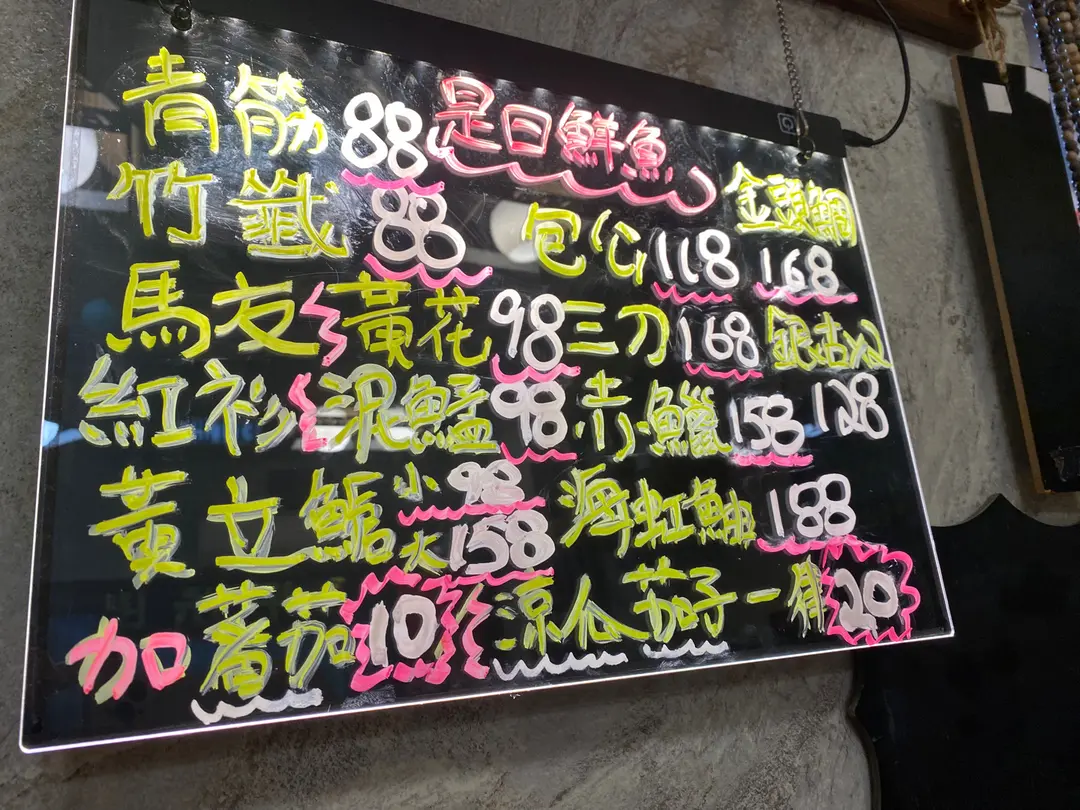 是日鮮魚
青筋 88
竹籤 88
包公 118
金頭鯛 168
馬友 黃花 98
三刀 168
銀沽x2 128
紅衫 泥鯭 98
赤鱲 158
黃立鯧 小 98 大 158
海虹魽 188
加蕃茄 10
涼瓜 茄子 一條 20